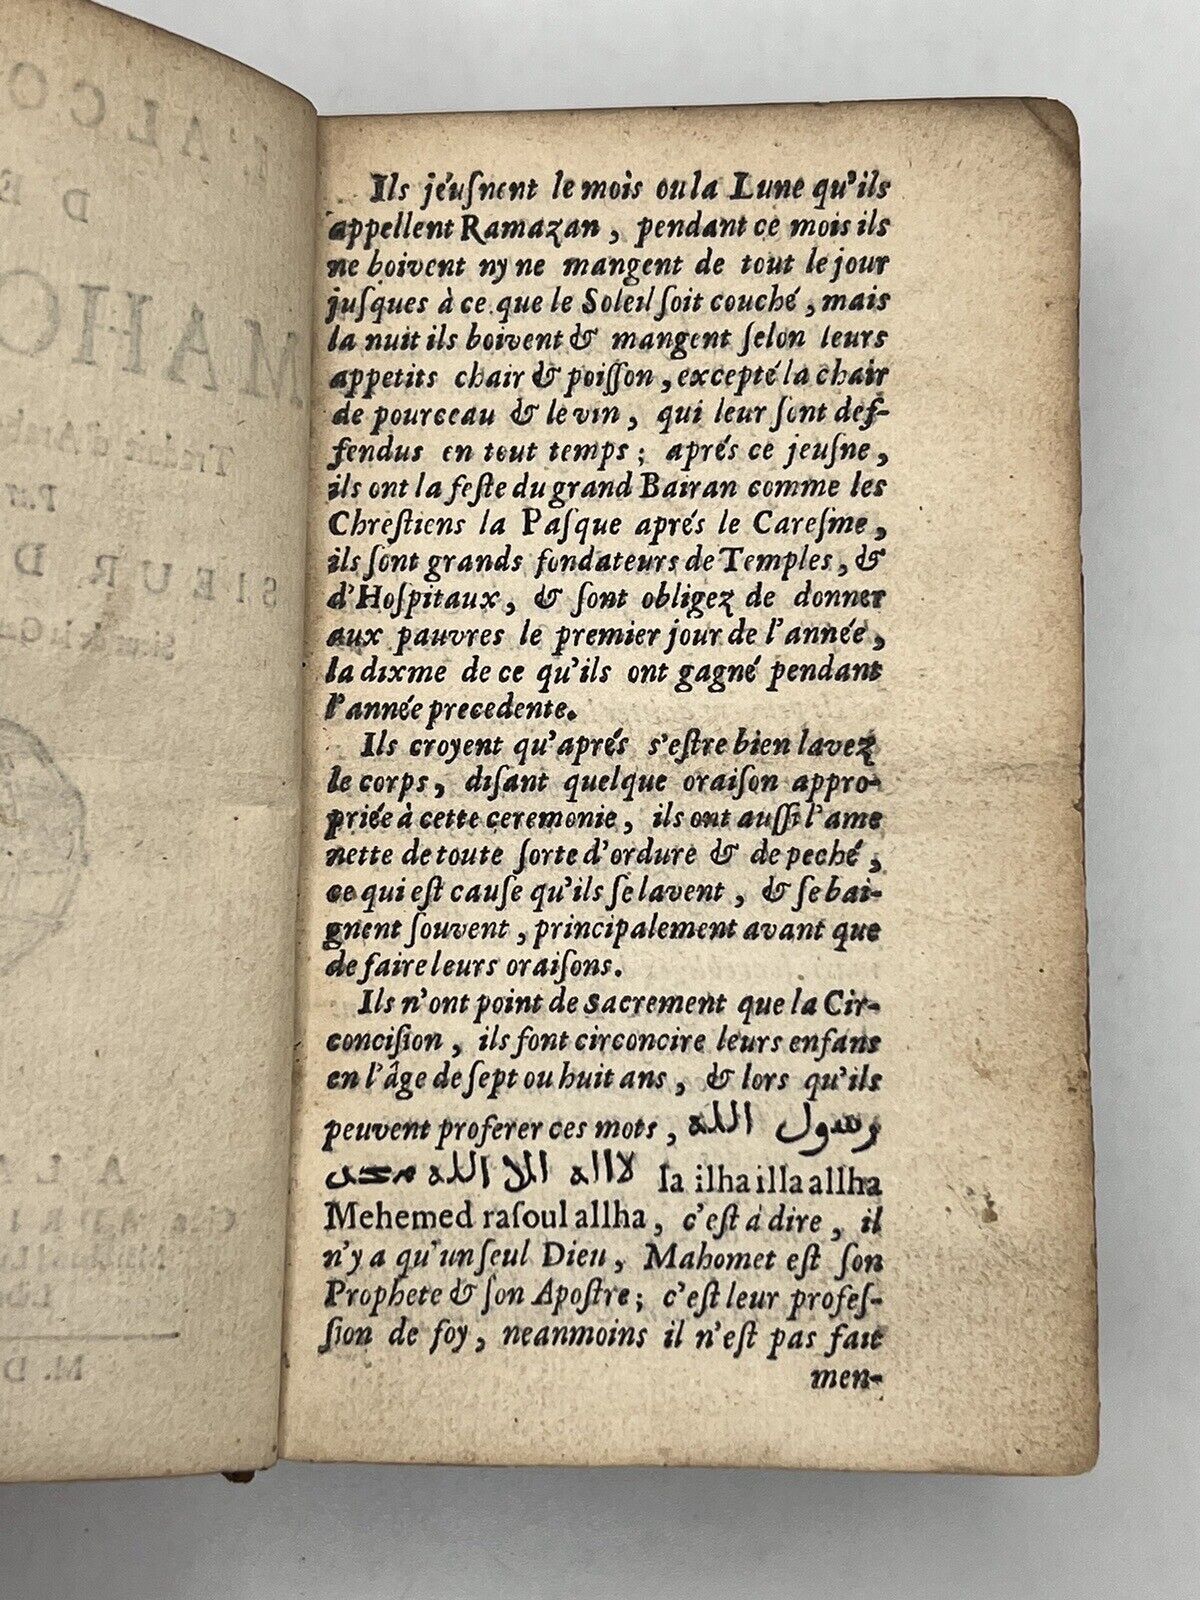 Ils jéuſnent le mois ou la Lune qu'ils
appellent Ramazan, pendant ce mois ils
ne boivent ny ne mangent de tout le jour
juſques à ce que le Soleil ſoit couché, mais
la nuit ils boivent & mangent ſelon leurs
appetits chair & poiſſon, excepté la chair
de pourceau & le vin, qui leur ſont deſ-
fendus en tout temps; aprés ce jeuſne,
ils ont la feſte du grand Bairan comme les
Chreſtiens la Paſque aprés le Careſme,
ils ſont grands fondateurs de Temples, &
d'Hoſpitaux, & ſont obligez de donner
aux pauvres le premier jour de l'année,
la dixme de ce qu'ils ont gagné pendant
l'année precedente.
Ils croyent qu'aprés s'eſtre bien lavez
le corps, diſant quelque oraiſon appro-
priée à cette ceremonie, ils ont auſſi l'ame
nette de toute ſorte d'ordure & de peché,
ce qui eſt cauſe qu'ils ſe lavent, & ſe bai-
gnent ſouvent, principalement avant que
de faire leurs oraiſons.
Ils n'ont point de Sacrement que la Cir-
conciſion, ils font circoncire leurs enfans
en l'âge de ſept ou huit ans, & lors qu'ils
peuvent proferer ces mots, رسول الله
لااله الا الله محمد la ilha illa allha
Mehemed raſoul allha, c'eſt à dire, il
n'y a qu'un ſeul Dieu, Mahomet eſt ſon
Prophete & ſon Apoſtre; c'eſt leur profeſ-
ſion de foy, neanmoins il n'eſt pas fait
men-